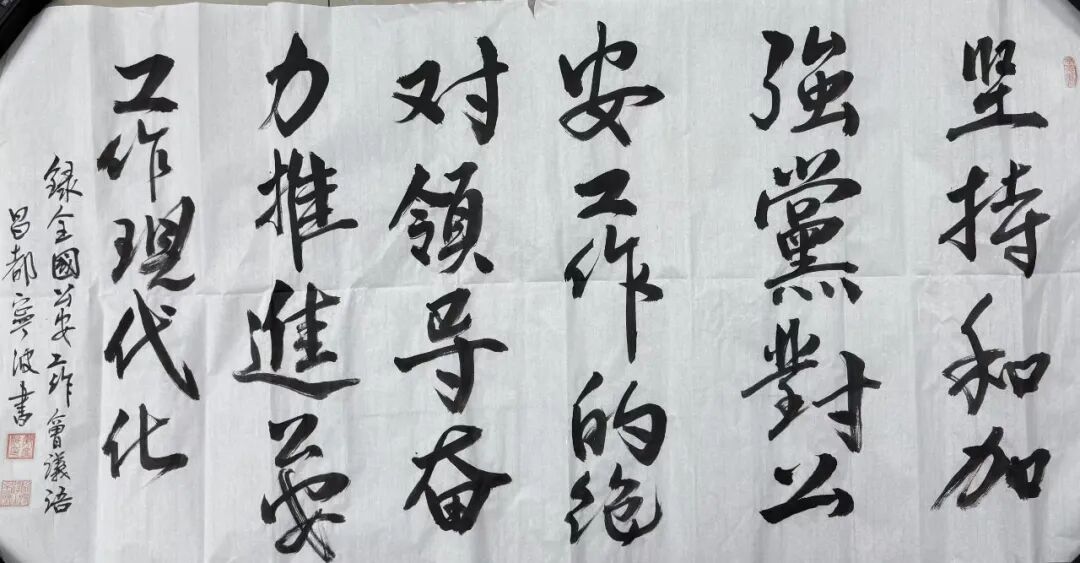 坚持和加
強黨對公
安工作的绝
对領导奋
力推進公安
工作現代化
録全國公安工作會議语
昌都寧波書